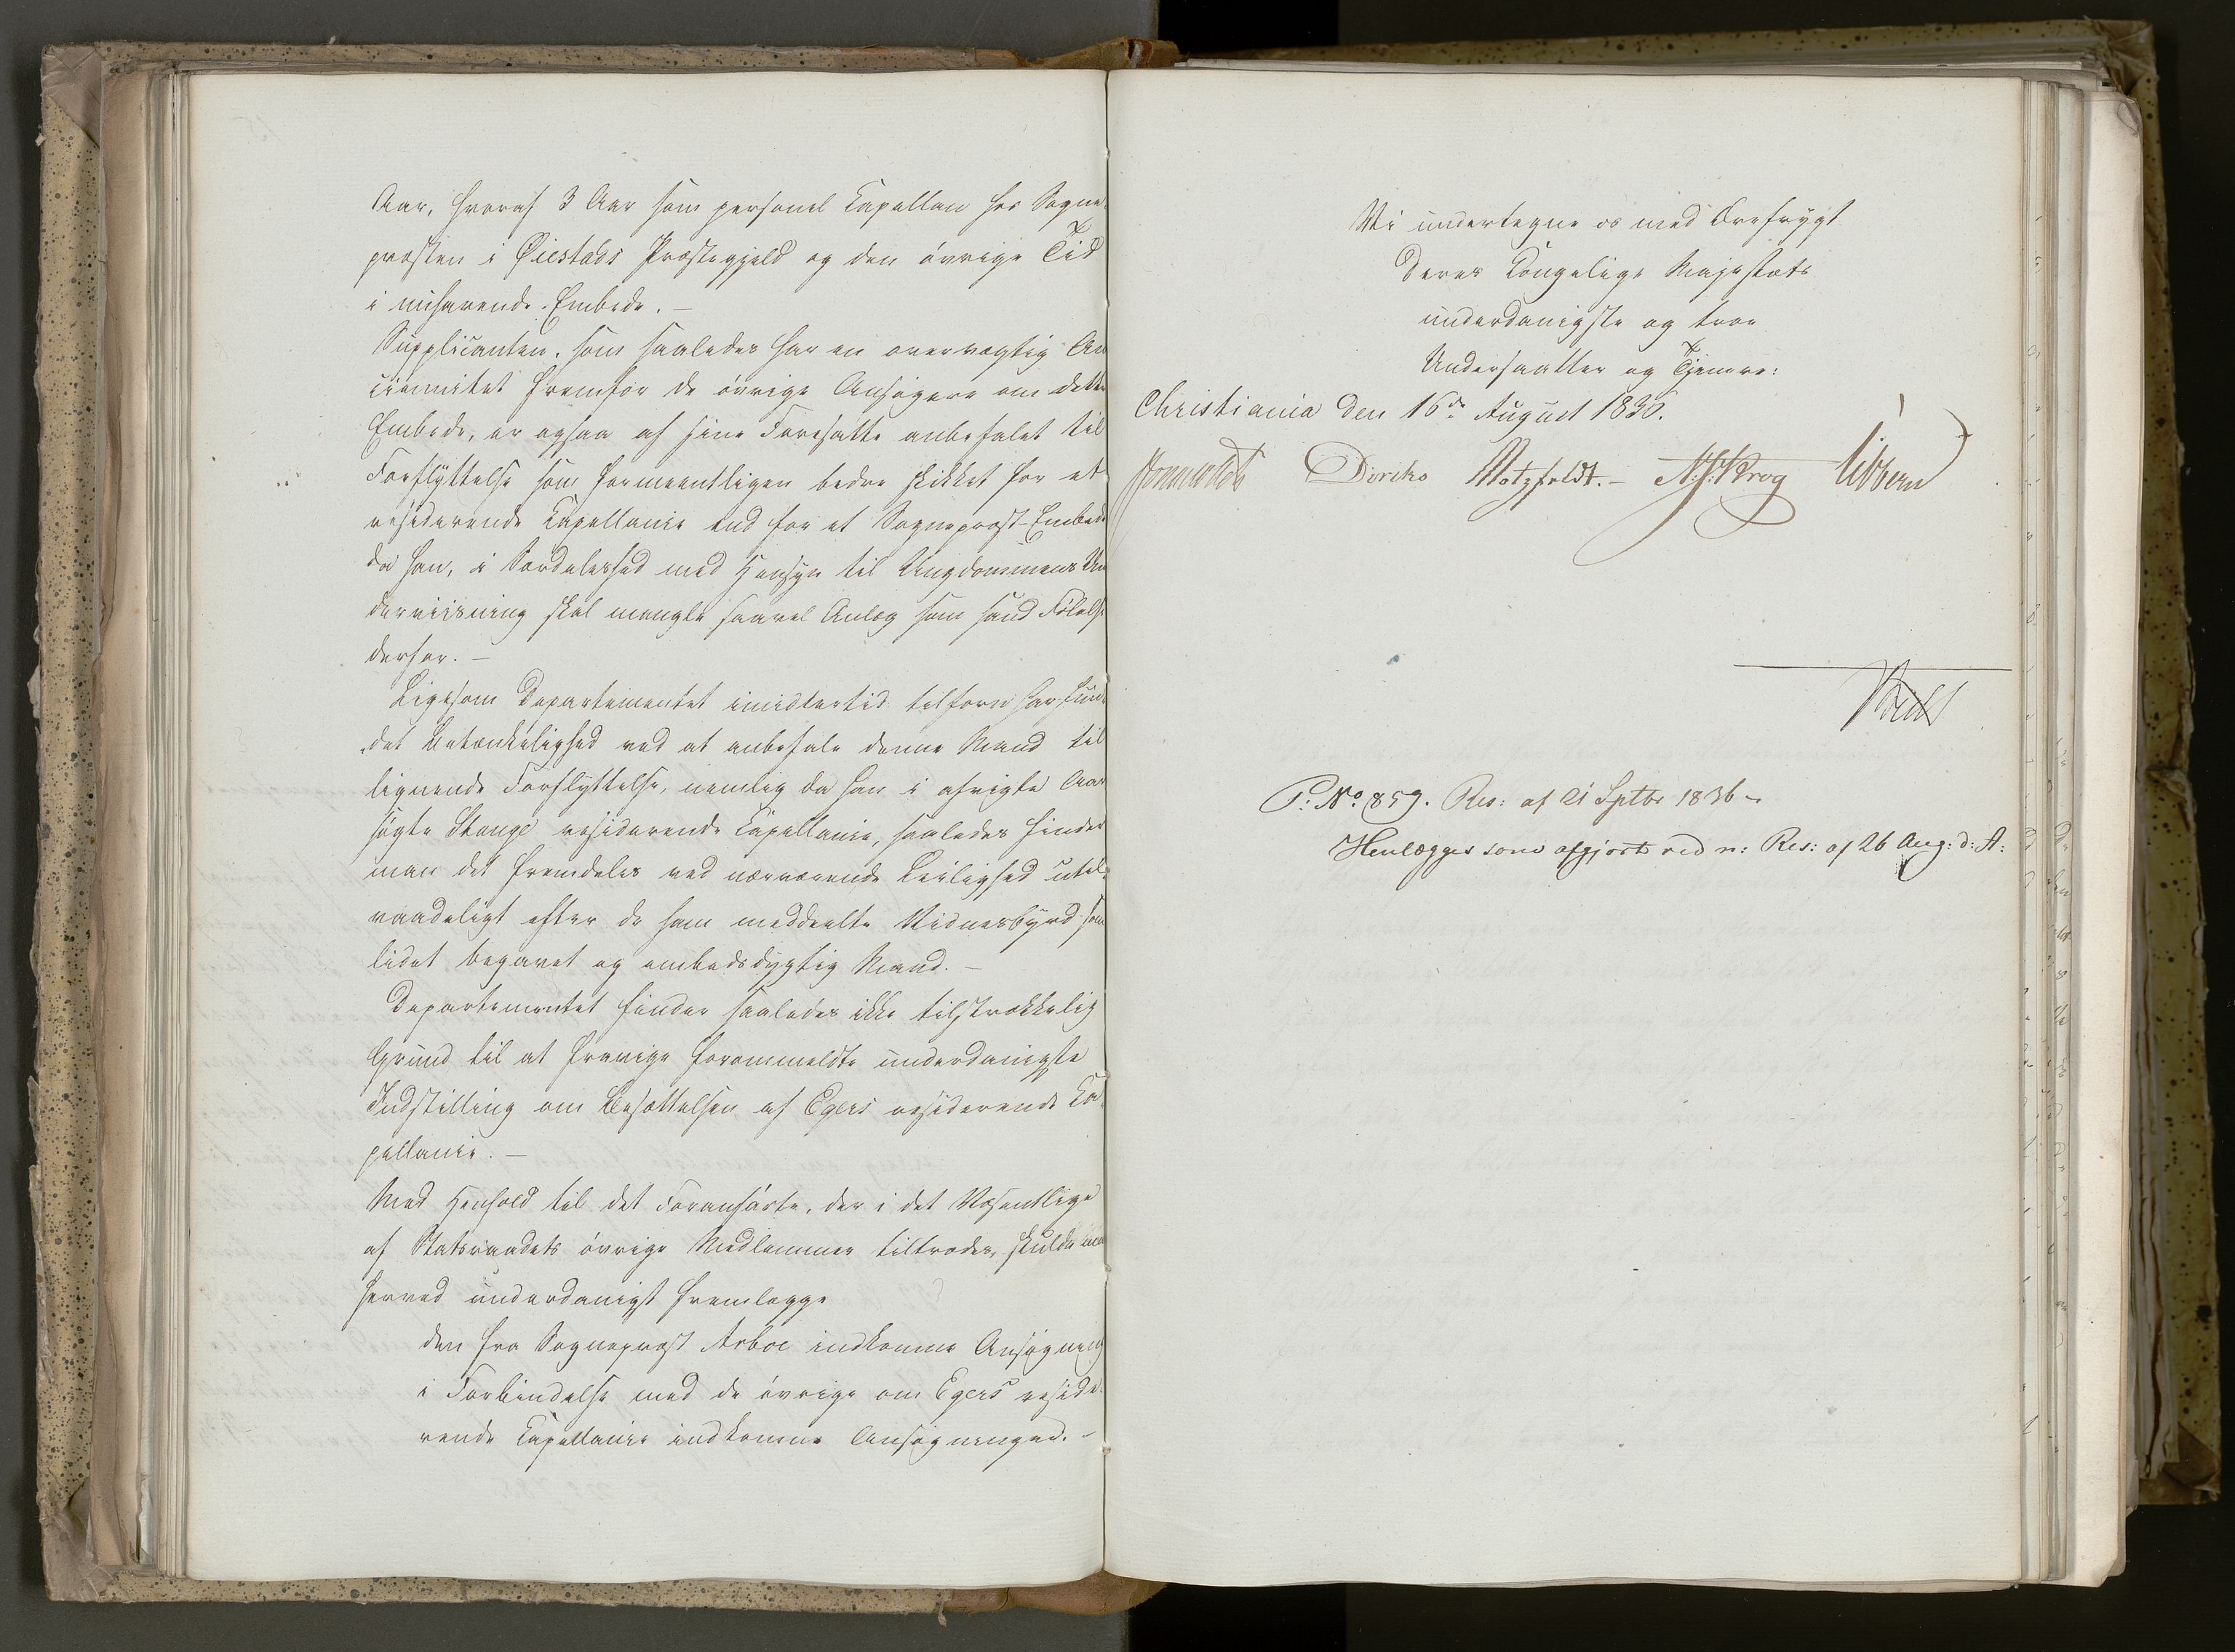 Aar, hvoraf 3 Aar som personel Capellan hos Sogne-
præsten i Øiestads Præstegjeld og den øvrige Tid
i nuhavende Embede. –
Supplicanten, som saaledes har en overvægtig An
ciennitet fremfor de øvrige Ansøgere om dette
Embede, er ogsaa af sine Foresatte anbefalet til
Forflyttelse som formeentligen bedre skikket for et
residerende Capellanie end for et Sognepræst-Embede
da han, i Særdeleshed med Hensyn til Ungdommens Un
derviisning skal mangle saavel Anlæg som sand Følelse
derfor. –
Ligesom Departementet imidlertid tilforn har fun-
det Betænkelighed ved at anbefale denne Mand til
lignende Forflyttelse, nemlig da han i afvigte Aar
søgte Stange residerende Capellanie, saaledes finder
man det fremdeles ved nærværende Leilighed util-
raadeligt efter de ham meddeelte Vidnesbyrd som
lidet begavet og embedsdygtig Mand. –
Departementet finder saaledes ikke tilstrækkelig
Grund til at fravige forommeldte underdanigste
Indstilling om Besættelsen af Egers residerende Ca-
pellanie. –
Med Henhold til det Foranførte, der i det Væsentlige
af Statsraadets øvrige Medlemmer tiltrædes, skulde man
herved underdanigst fremlægge
den fra Sognepræst Arboe indkomne Ansøgning
i Forbindelse med de øvrige om Egers reside-
rende Capellanie indkomne Ansøgninger. –
Vi undertegne os med Ærefrygt
Deres Kongelige Majestæts
underdanigste og troe
Undersaatter og Tjenere:
Christiania den 16de August 1836.
Diriks Motzfeldt. – N. J. Krog Vibbern
P: No. 859. Res: af 21 Sptbr 1836 –
Henlægges som afgjort ved n: Res: af 26 Aug: d: A: